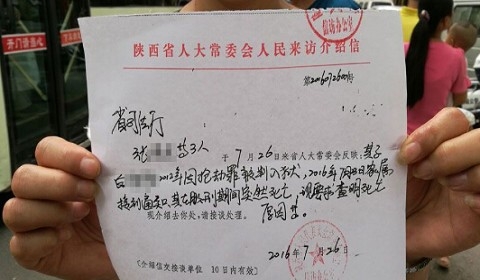 开门请当心
信访办公室
陕西省人大常委会人民来访介绍信
第20160726001号
省司法厅
张 等3人 于 7 月 26 日来省人大常委会反映:其子
白 2012年因抢劫罪被判入狱,2016年7月 日家属
接到通知其在服刑期间突然死亡,现要求查明死亡
原因。
现介绍去你处,请接谈处理。
2016 年 7 月 26 日
〔介绍信交接谈单位 10日内有效〕